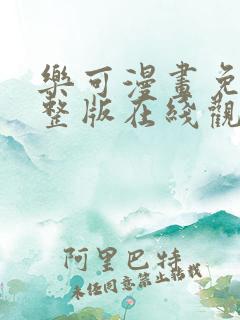 樂可漫畫免
整版在綫觀
阿里巴特
未经同意禁止转载